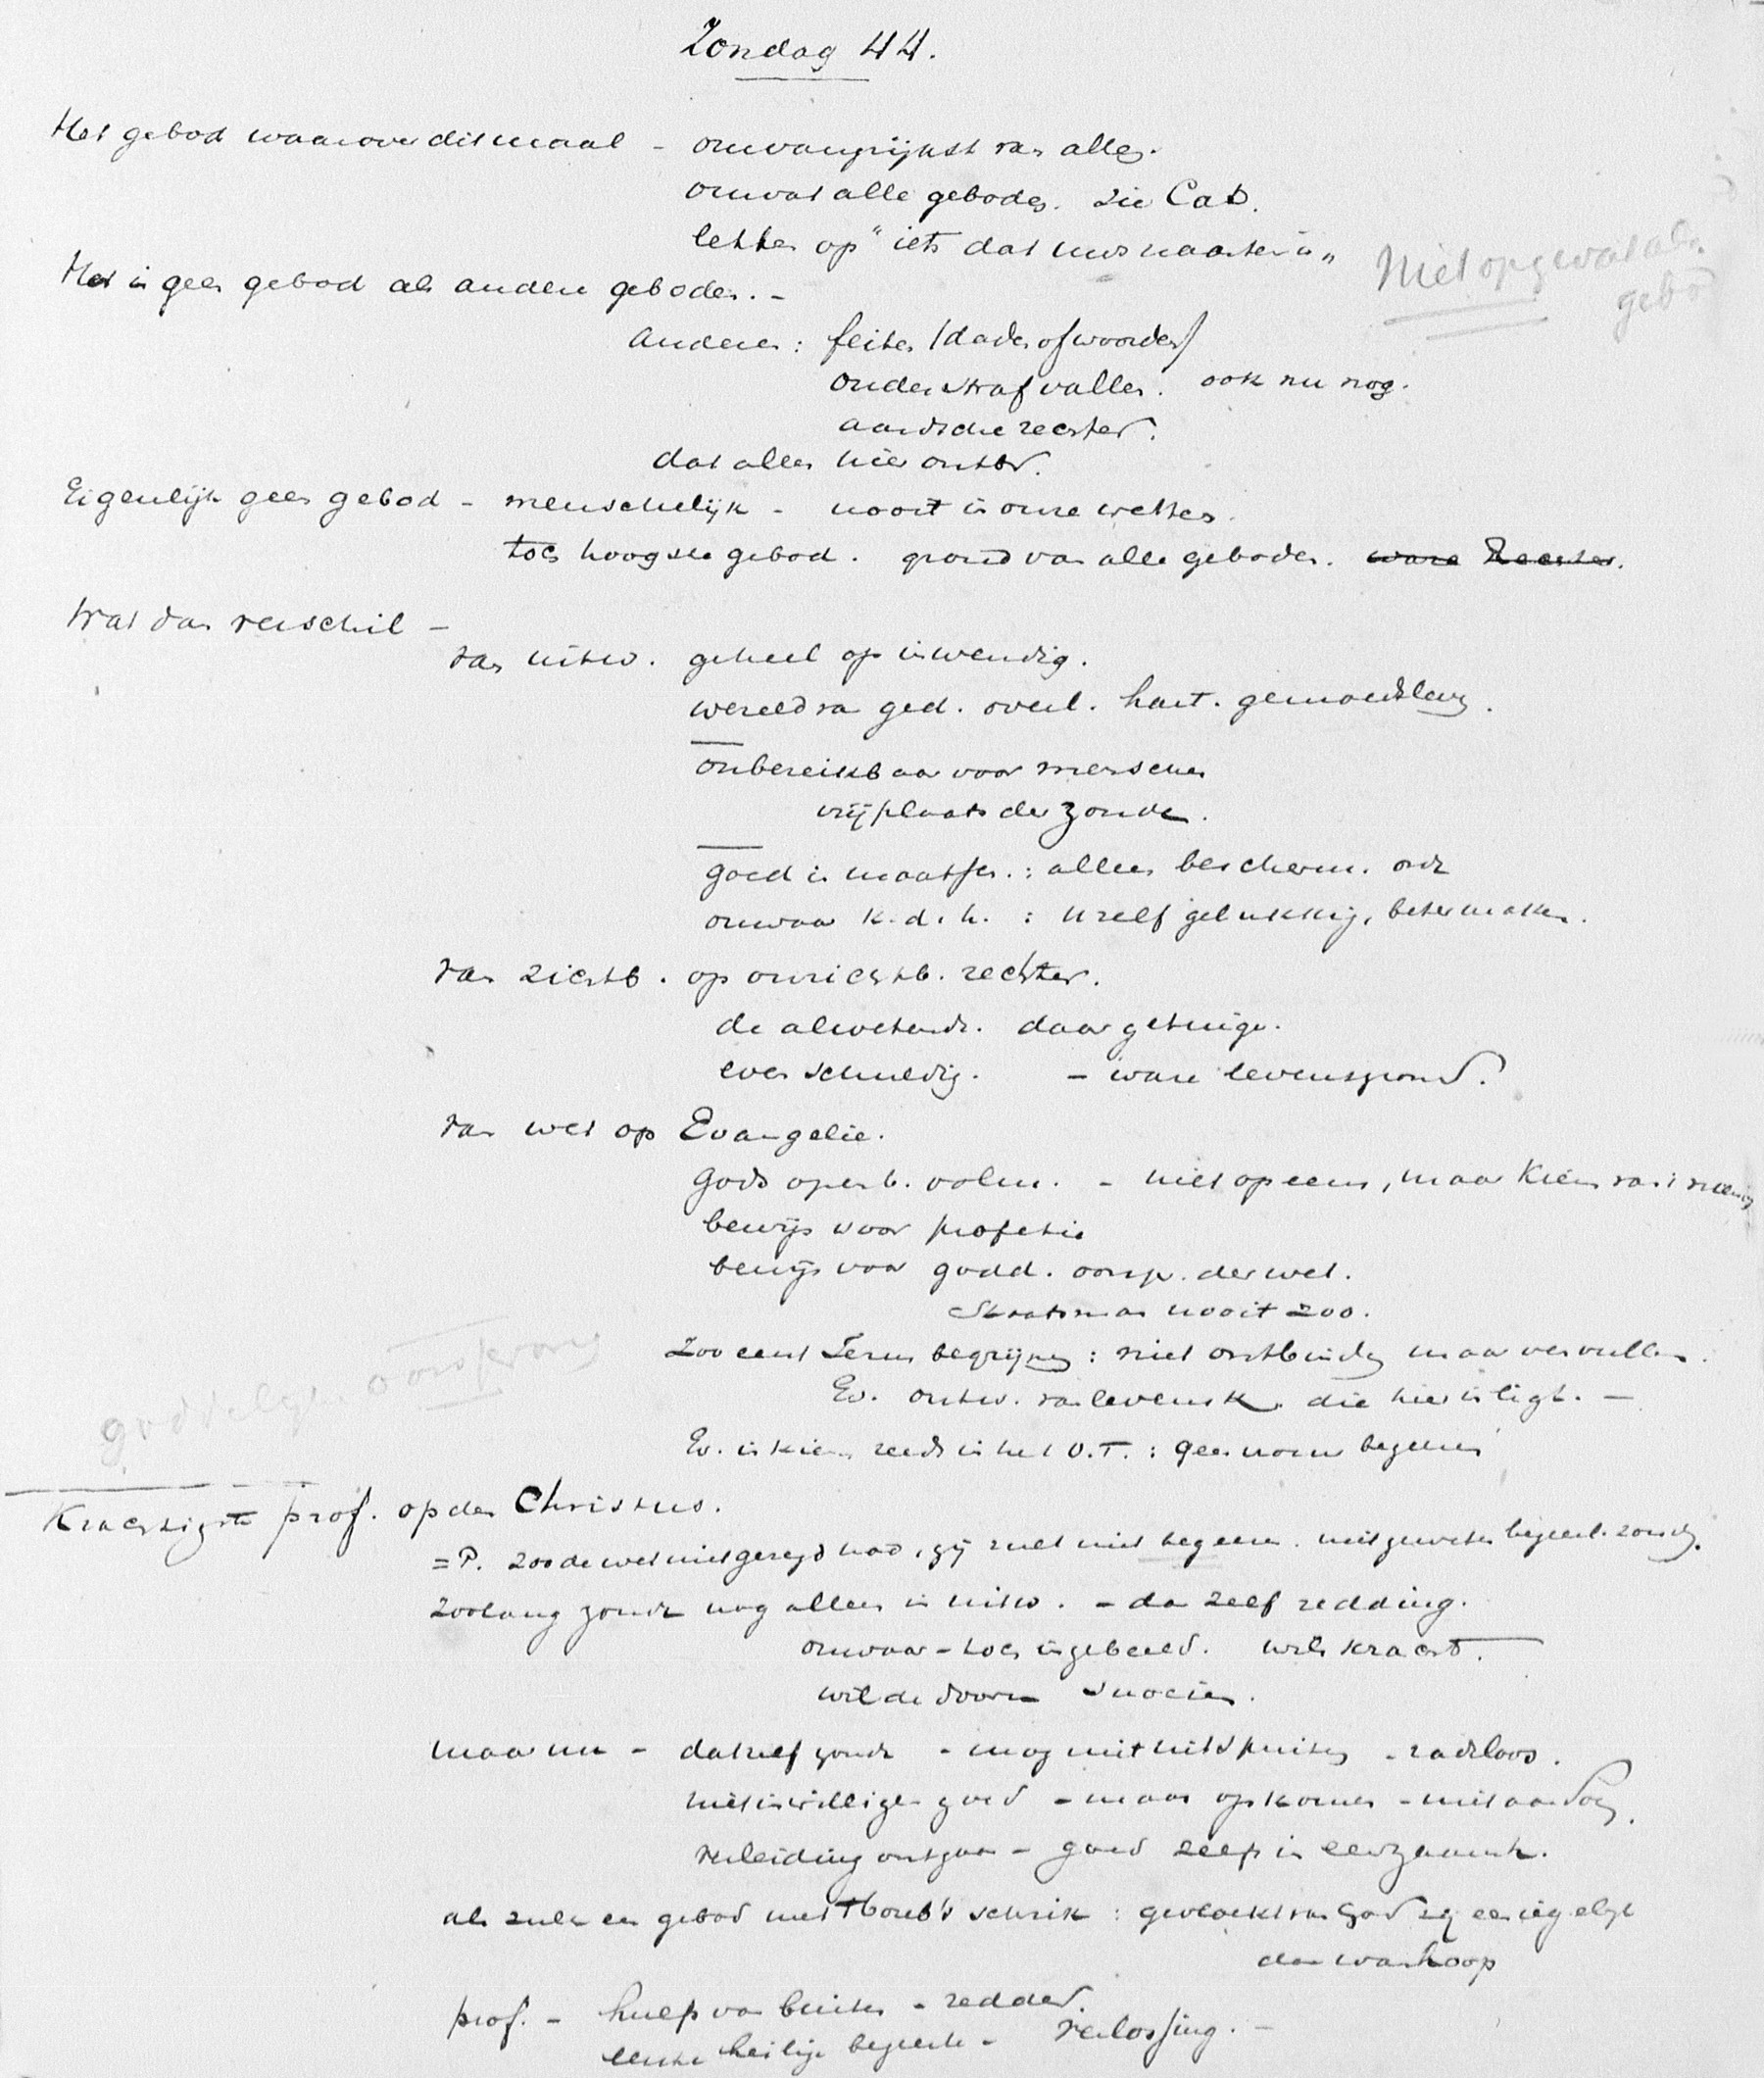 Zondag 44.
Het gebod waarover ditmaal - omvangrijkst van alles.
omvat alle geboden. zie Cat.
letten op "iets dat uws naasten is"
Niet opgevat als
gebod
Het is geen gebod als andere geboden. -
andere: feiten (daden of woorden)
onder straf vallen. ook nu nog.
aardsche rechter.
dat alles hier ontbr.
Eigenlijk geen gebod - menschelijk - nooit in onze wetten.
toch hoogste gebod. grond van alle geboden. ware Rechter.
Wat dan verschil -
van uitw. geheel op inwendig.
wereld van ged. overl. hart. gemoedslev.
onbereikbaar voor menschen
vrijplaats der zonde.
goed in maatsch.: alleen bescherm. orde
onwaar k.d.h. : uzelf gelukkig, beter maken.
van zichtb. op onzichtb. rechter.
de alwetende. daar getuige.
even schuldig. - ware levensgrond.
van wet op Evangelie.
Gods openb. volm. - niet opeens, maar kiem van 't
bewijs voor profetie
bewijs voor godd. oorspr. der wet.
Staatsman nooit zoo.
Zoo eerst Jezus begrijpen: niet ontbinden maar vervullen.
goddelijke oorsprong
Ev. ontw. van levensk. die hier in ligt. -
Ev. in kiem reeds in het O.T. : geen begeeren
Krachtigste prof. op den Christus.
= P. zoo de wet niet gezegd had, gij zult niet begeeren. niet geweten begeerl. zonde.
zoolang zonde nog alleen in uitw. - dan zelf redding.
onwaar - toch ingebeeld. wilskracht.
wilde doorn snoeien.
maar nu - dat zelf zonde - mag niet uitspruiten - radeloos.
niet inwilligen goed - maar opkomen - niet
verleiding ontgaan - goed zelfs in eenzaamh.
als zulk een gebod met Horeb's schrik: gevloekt van God zij een iegelijk
dan wanhoop
prof. - hulp van buiten - redder.
heilige begeerte - verlossing. -